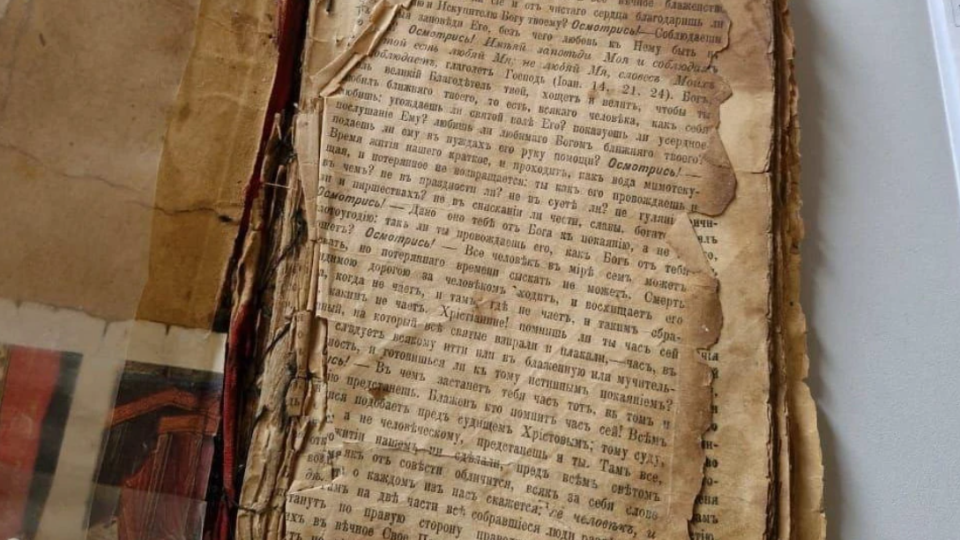 вѣчное блаженство
и отъ чистаго сердца благодаришь ли
и Искупителю Богу твоему? Осмотрись! — Соблюдаешь
заповѣди Его, безъ чего любовь къ Нему быть не
Осмотрись! Имѣяй заповѣди Моя и соблюдаяй
той есть любяй Мя; не любяй Мя, словесъ Моихъ
соблюдаетъ, глаголетъ Господь (Іоан. 14, 21. 24). Богъ,
великій Благодѣтель твой, хощетъ и велитъ, чтобы ты
любилъ ближняго твоего, то есть, всякаго человѣка, какъ себя
любишь; угождаешь ли святой волѣ Его? показуешь ли усердное
послушаніе Ему? любишь ли любимаго Богомъ ближняго твоего?
подаешь ли ему въ нуждахъ его руку помощи? Осмотрись! —
Время житія нашего краткое, и проходитъ, какъ вода мимотеку-
щая, и потерянное не возвращается: ты какъ его провождаешь и
въ чемъ? не въ праздности ли? не въ суетѣ ли? не гуляні
и пиршествахъ? не въ снисканіи ли чести, славы, богат
Осмотрись! — Дано оно тебѣ отъ Бога къ покаянію, а не
плотоугодію: такъ ли ты провождаешь его, какъ Богъ отъ тебѣ
хощетъ? Осмотрись! — Все человѣкъ въ мірѣ семъ можетъ
сыскать, но потеряннаго времени сыскать не можетъ. Смерть
невидимою дорогою за человѣкомъ ходитъ, и восхищаетъ его
когда не чаетъ, и тамъ, гдѣ не чаетъ, и такимъ обра-
какимъ не чаетъ. Хрістіанине! помнишь ли ты часъ сей
ный, на который всѣ святые взирали и плакали, — часъ, въ
слѣдуетъ всякому итти или въ блаженную или мучитель-
ность, и готовишься ли къ тому истиннымъ покаяніемъ?
ись! — Въ чемъ застанетъ тебя часъ тотъ, въ томъ и
предстанешь. Блаженъ кто помнитъ часъ сей! Всѣмъ
подобаетъ предъ судищемъ Хрістовымъ; тому суду,
а не человѣческому, предстанешь и ты. Тамъ все,
житіи нашемъ ни сдѣлали, предъ всѣмъ свѣтомъ
отъ совѣсти обличится, всякъ за себя слово
о каждомъ изъ насъ скажется: се человѣкъ, и
на двѣ части всѣ собравшіеся люди
станутъ по правую сторону
въ вѣчное Свое